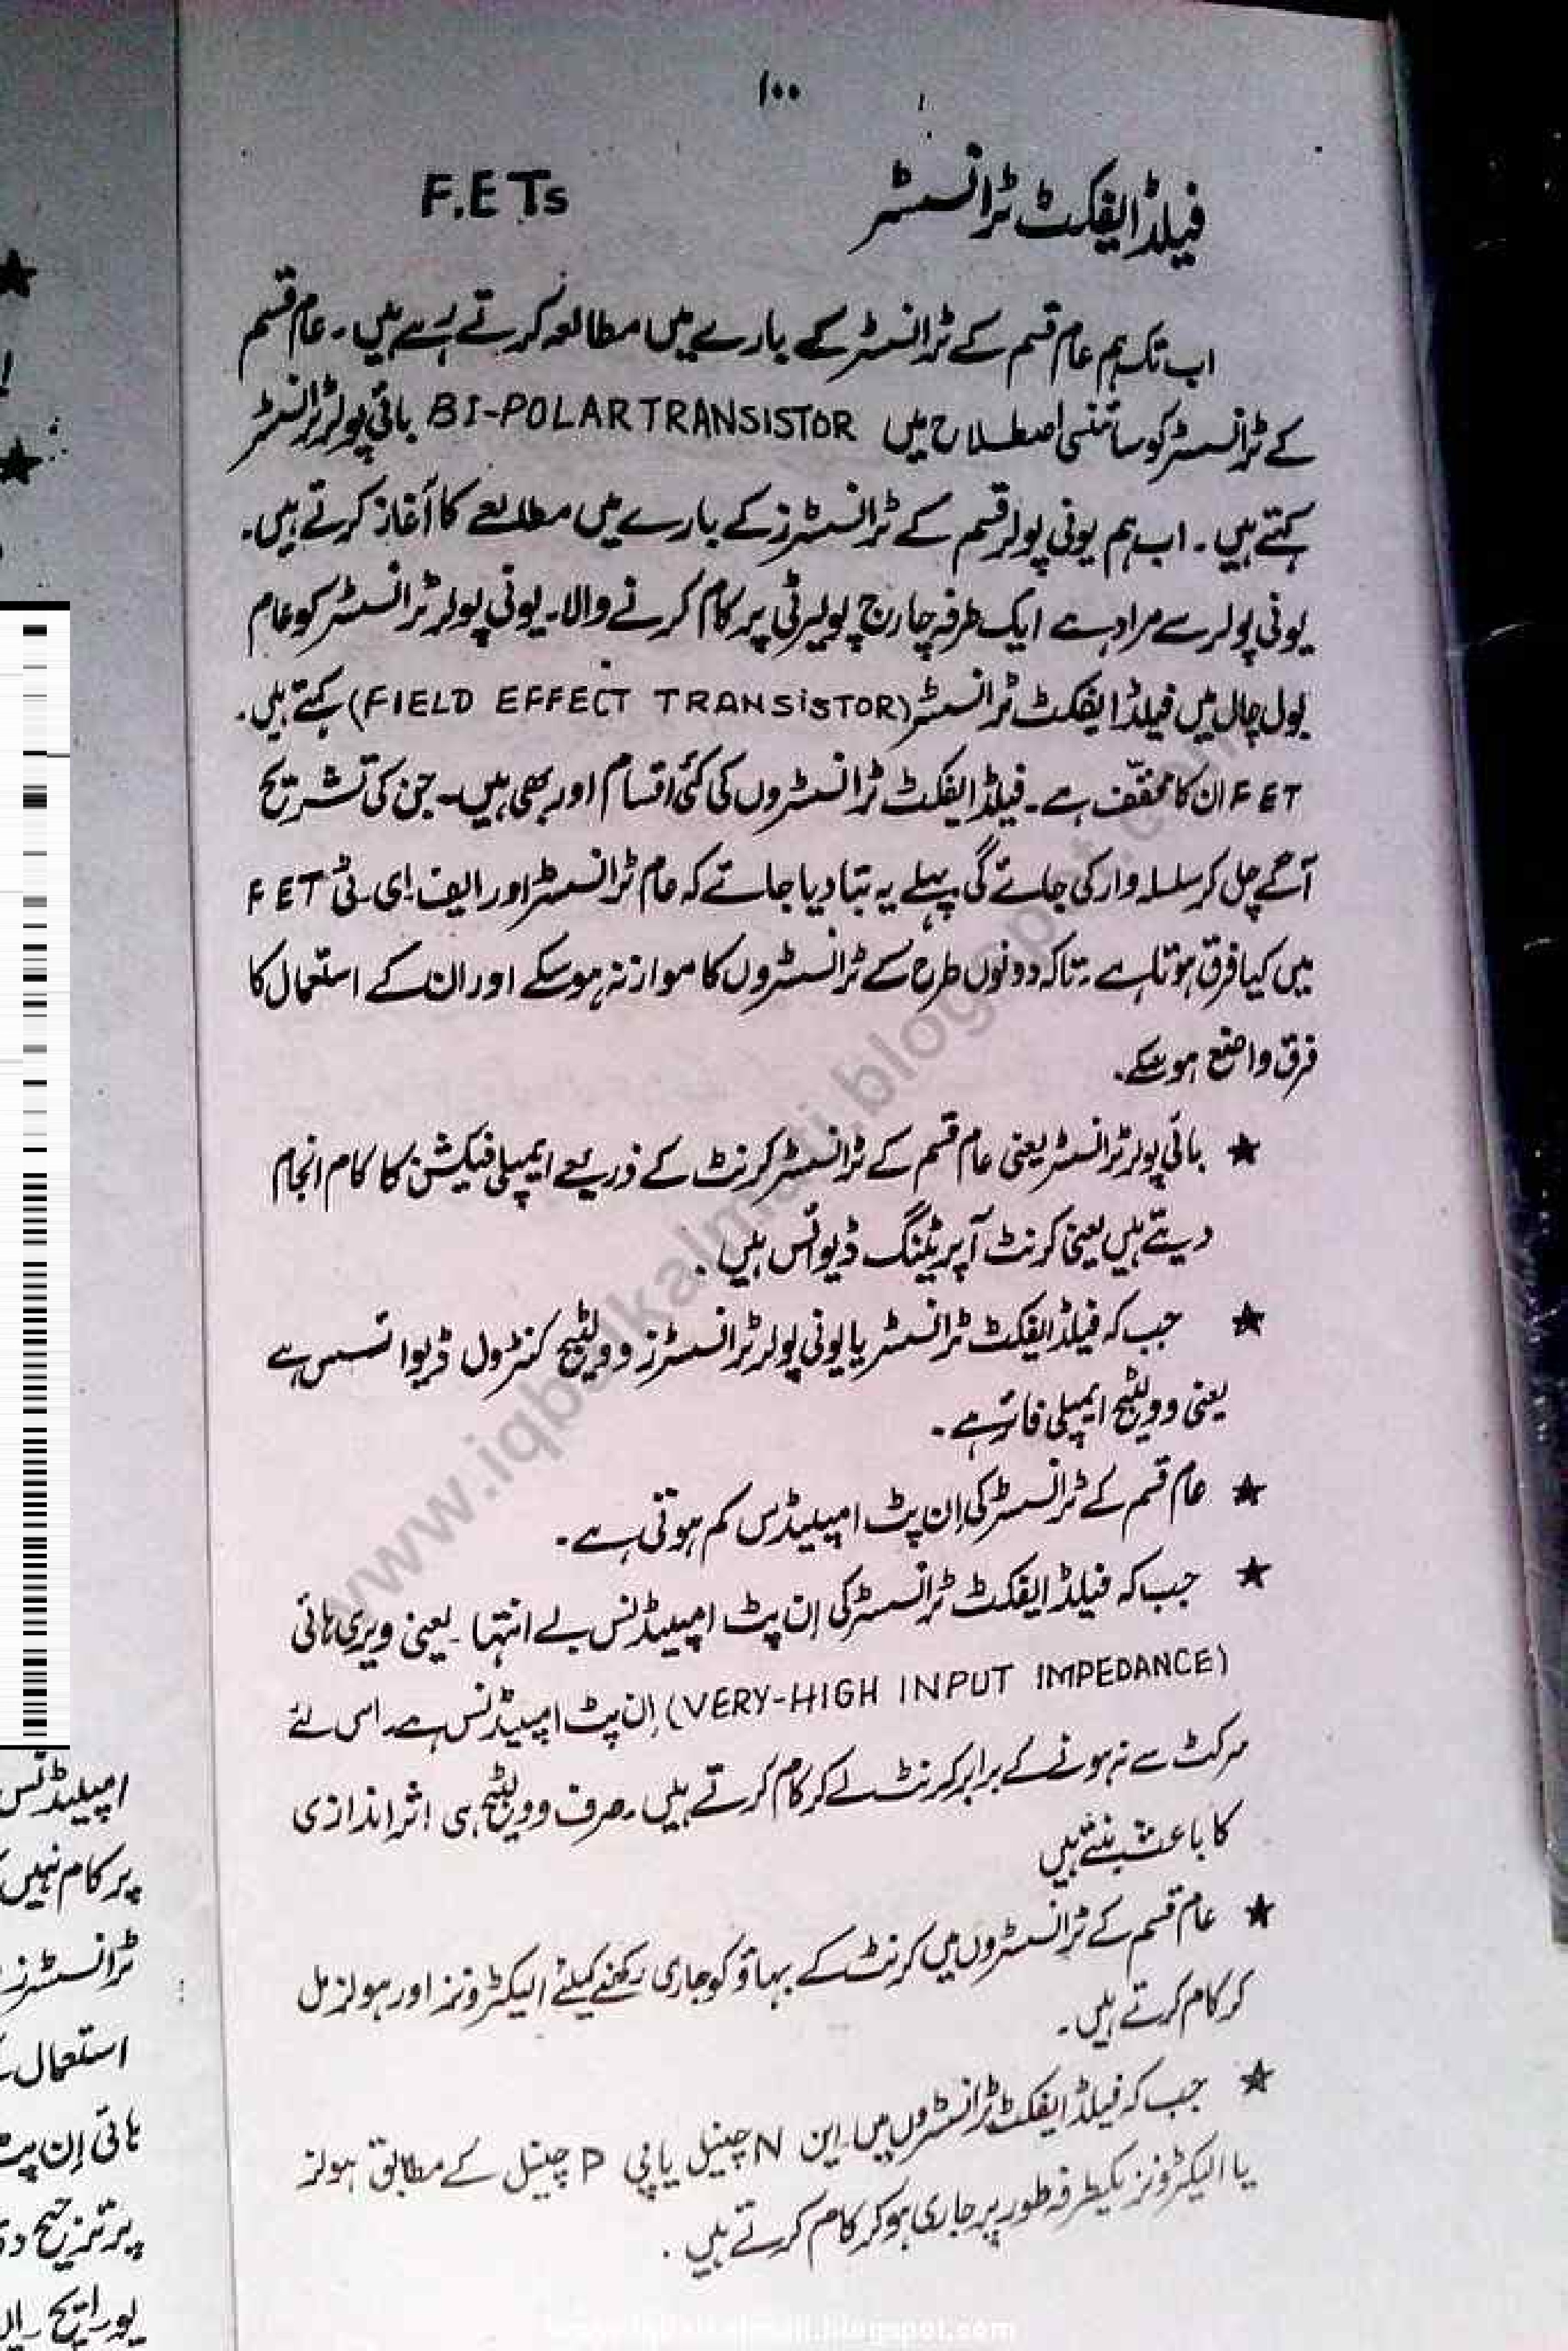 ۱۰۰
فیلڈ ایفکٹ ٹرانسسٹر F.E.Ts
اب تک ہم عام قسم کے ٹرانسسٹر کے بارے میں مطالعہ کرتے رہے ہیں۔ عام قسم
کے ٹرانسسٹر کو سائنسی اصطلاح میں BI-POLAR TRANSISTOR بائی پولر ٹرانسسٹر
کہتے ہیں۔ اب ہم یونی پولر قسم کے ٹرانسسٹرز کے بارے میں مطالعے کا آغاز کرتے ہیں۔
یونی پولر سے مراد ہے ایک طرفہ چارج پولیرٹی پر کام کرنے والا۔ یونی پولر ٹرانسسٹر کو عام
بول چال میں فیلڈ ایفکٹ ٹرانسسٹر (FIELD EFFECT TRANSiSTOR) کہتے ہیں۔
FET ان کا مخفّف ہے۔ فیلڈ ایفکٹ ٹرانسسٹروں کی کئی اقسام اور بھی ہیں۔ جن کی تشریح
آگے چل کر سلسلہ وار کی جائے گی پہلے یہ بتا دیا جائے کہ عام ٹرانسسٹر اور ایف۔ای۔ٹی FET
میں کیا فرق ہوتا ہے۔ تاکہ دونوں طرح کے ٹرانسسٹروں کا موازنہ ہو سکے اور ان کے استعمال کا
فرق واضع ہو سکے۔
★ بائی پولر ٹرانسسٹر یعنی عام قسم کے ٹرانسسٹر کرنٹ کے ذریعے ایمپلی فیکشن کا کام انجام
دیتے ہیں یعنی کرنٹ آپریٹنگ ڈیوائس ہیں۔
★ جب کہ فیلڈ ایفکٹ ٹرانسسٹر یا یونی پولر ٹرانسسٹرز وولٹیج کنٹرول ڈیوائسس ہے
یعنی وولٹیج ایمپلی فائر ہے۔
★ عام قسم کے ٹرانسسٹر کی اِن پٹ امپیڈنس کم ہوتی ہے۔
★ جب کہ فیلڈ ایفکٹ ٹرانسسٹر کی اِن پٹ امپیڈنس بے انتہا۔ یعنی ویری ہائی
(VERY-HIGH INPUT IMPEDANCE) اِن پٹ امپیڈنس ہے۔ اس لئے
سرکٹ سے نہ ہونے کے برابر کرنٹ لے کر کام کرتے ہیں۔ صرف وولٹیج ہی اثر اندازی
کا باعث بنتے ہیں
★ عام قسم کے ٹرانسسٹروں میں کرنٹ کے بہاؤ کو جاری رکھنے کیلئے الیکٹرونز اور ہولز مل
کر کام کرتے ہیں۔
★ جب کہ فیلڈ ایفکٹ ٹرانسسٹروں میں۔ این N چینل یا پی P چینل کے مطابق ہولز
یا الیکٹرونز یکطرفہ طور پر جاری ہو کر کام کرتے ہیں۔
امپیڈنس
پر کام نہیں
ٹرانسسٹرز
استعمال
ہائی اِن پٹ
پر ترجیح
www.iqbalkalmati.blogspot.com